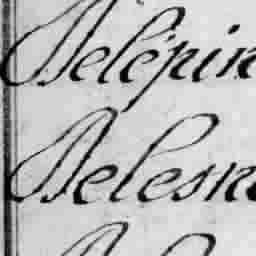 Delépin
Delesn